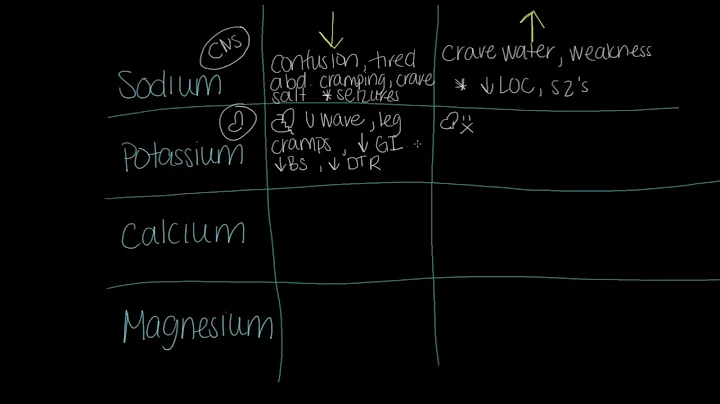 CNS
Sodium
confusion, tired
abd. cramping, crave
salt * seizures
crave water, weakness
* ↓ LOC, sz's
Potassium
U wave, leg
cramps, ↓ GI
↓ BS, ↓ DTR
Calcium
Magnesium